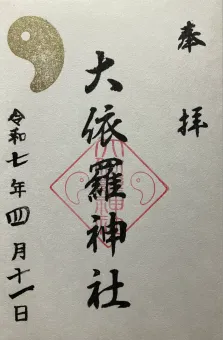 奉拝
大依羅神社
令和七年四月十一日